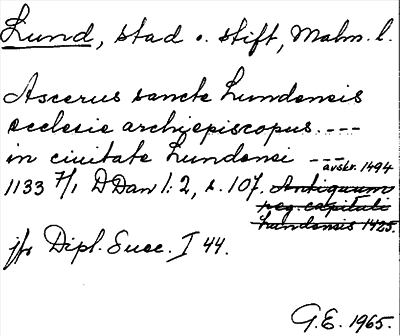 Lund, stad o. stift, Malm. l.
Ascerus sancte Lundensis
ecclesie archiepiscopus ----
in ciuitate Lundensi ---
avskr. 1494
1133 7/1 D Dan 1:2, s. 107. Antiquum
reg. capituli
Lundensis 1425.
jfr Dipl. Suec. I 44.
G.E. 1965.